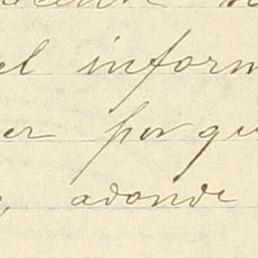 el inform
er por qu
, adonde